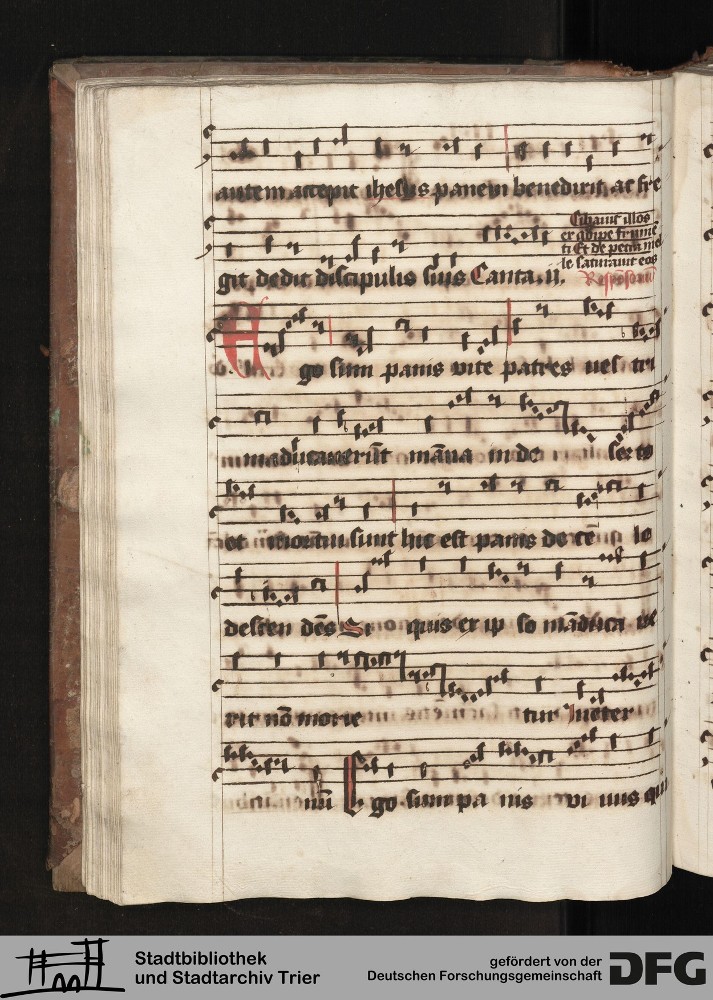 autem accepit ihesus panem benedixit ac fre
git dedit discipulis suis Canta.u.
Cibauit illos
ex adipe frume
ti Et de petra mel
le saturauit eos
Ego sum panis vite patres ues tri
manducauerūt māna in de ser to
et mortui sunt hic est panis de ce lo
descen dēs Si quis ex ip so māduca ue
rit nō morie tur Jn eter
nū Ego sum pa nis vi uus qui
Stadtbibliothek
und Stadtarchiv Trier
gefördert von der
Deutschen Forschungsgemeinschaft
DFG